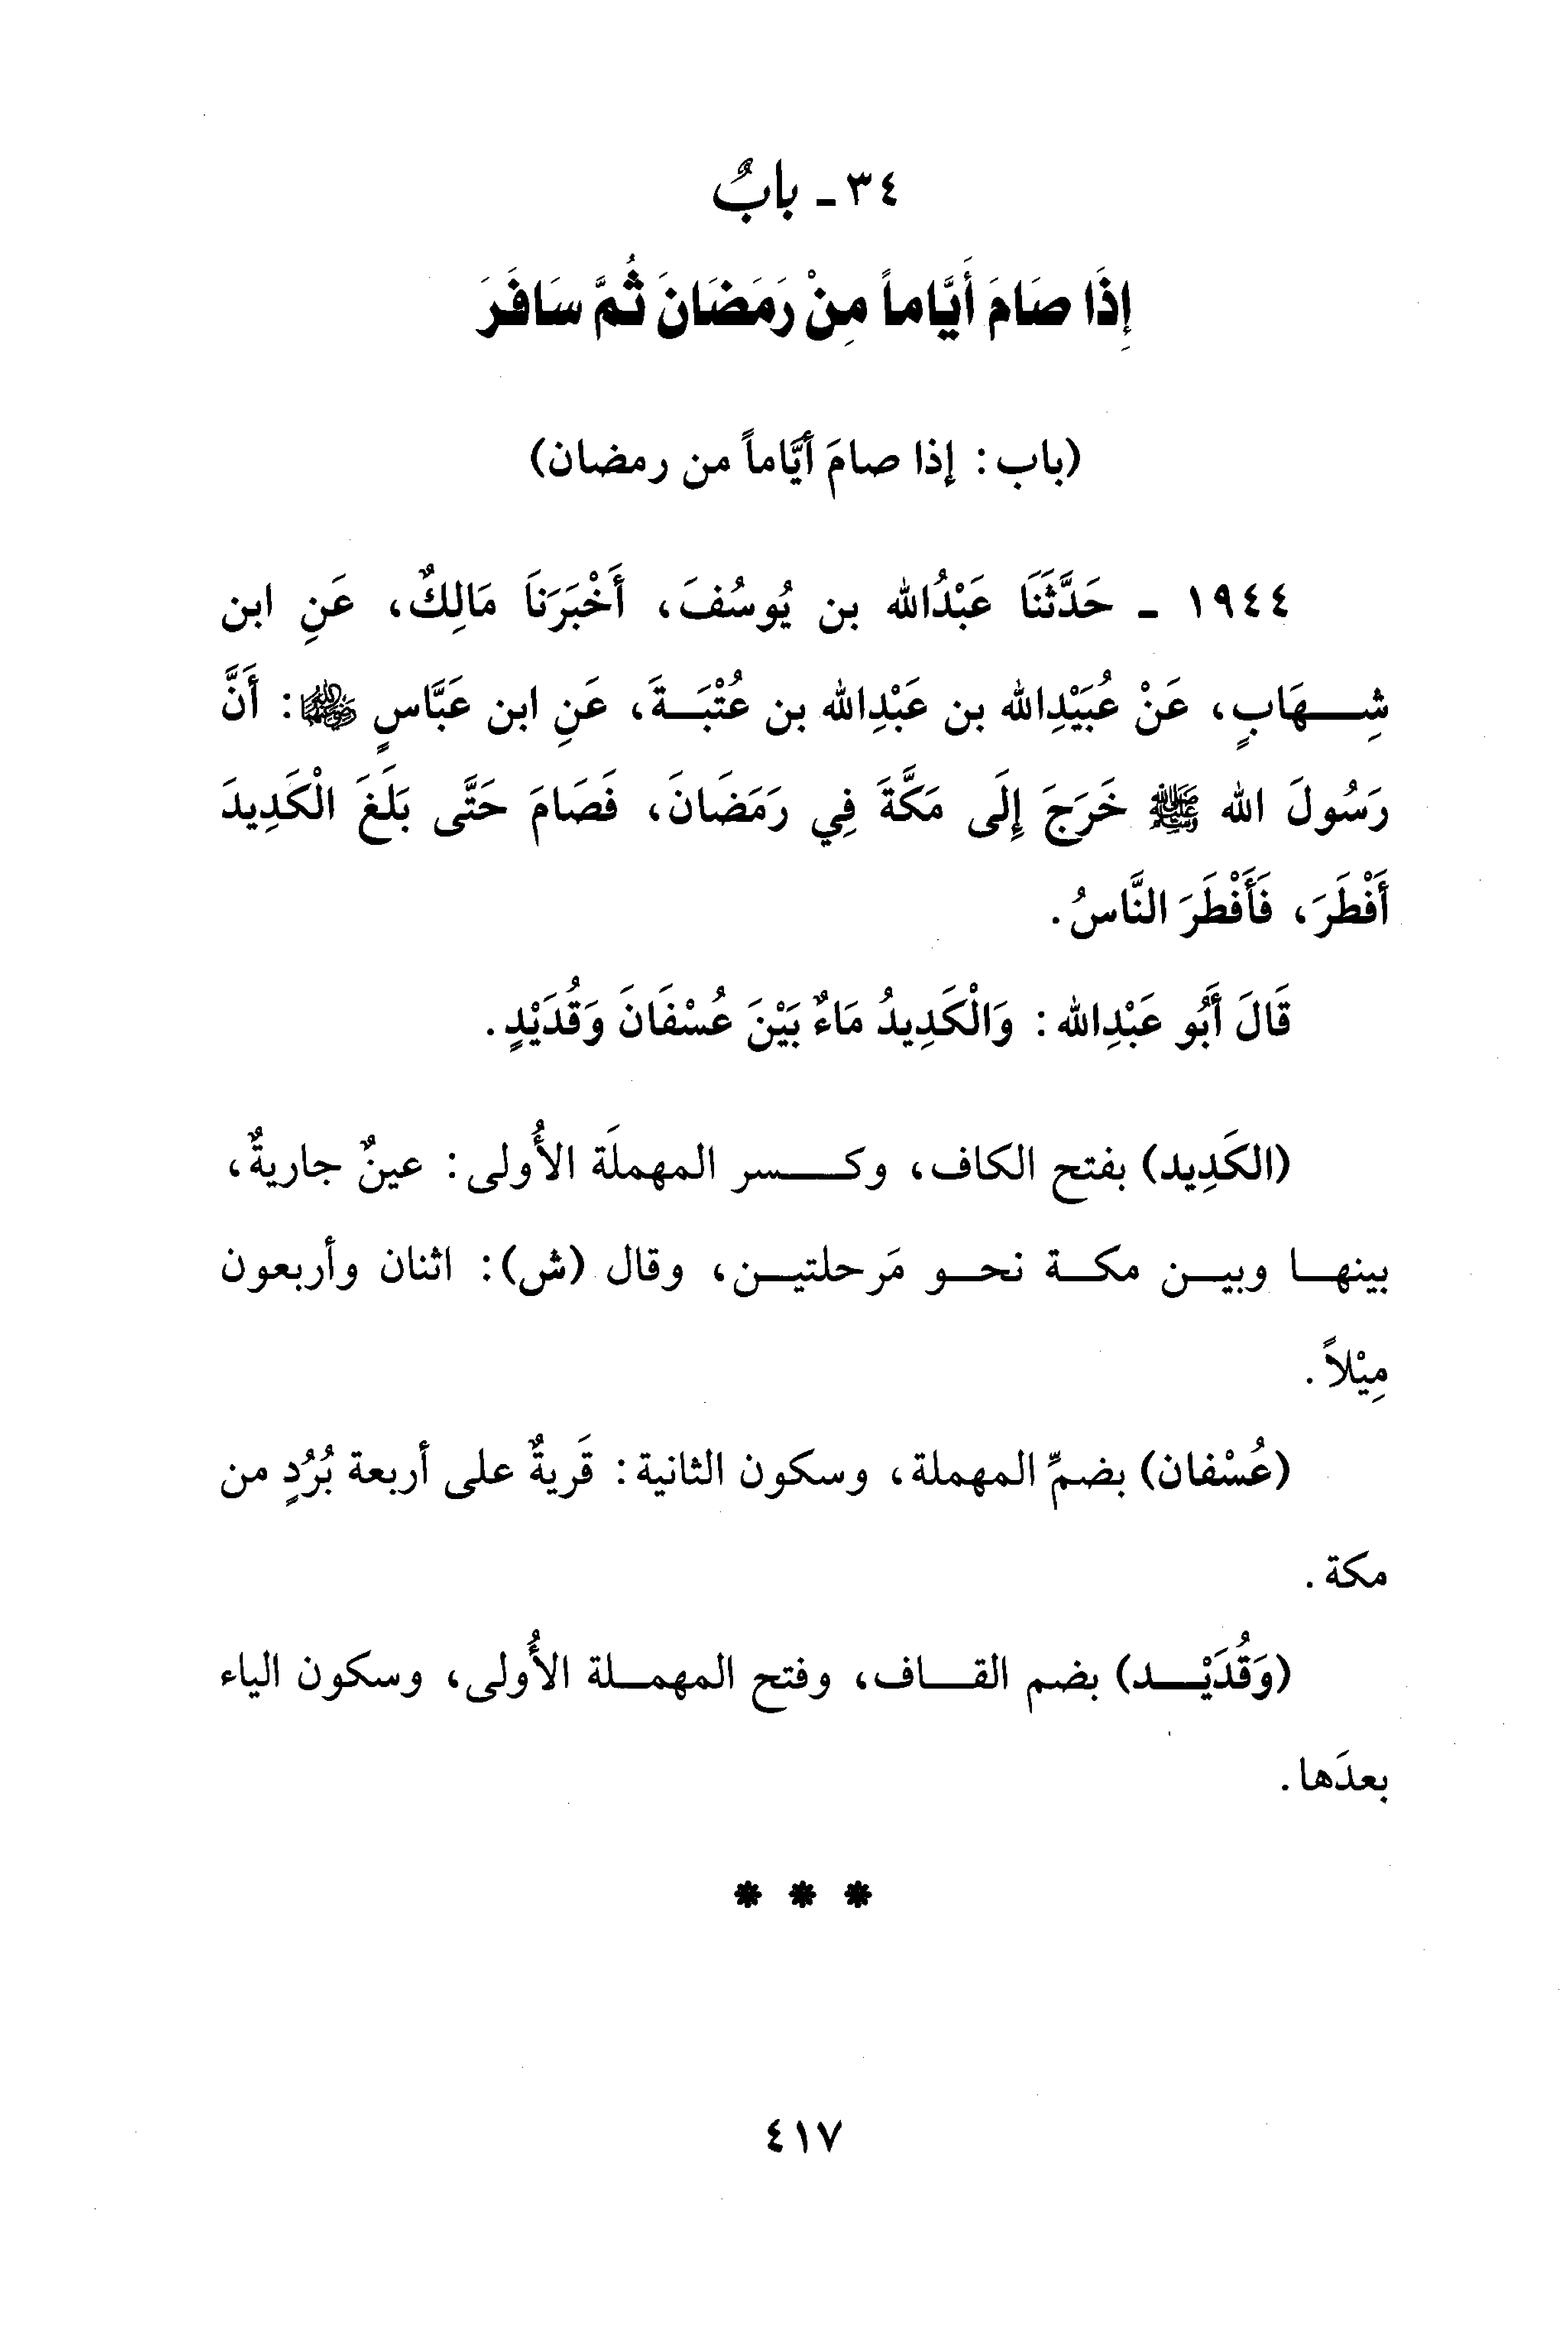 ٣٤ - بابٌ
إِذَا صَامَ أَيَّاماً مِنْ رَمَضَانَ ثُمَّ سَافَرَ
(باب: إذا صامَ أيَّاماً من رمضان)
١٩٤٤ - حَدَّثَنَا عَبْدُالله بن يُوسُفَ، أَخْبَرَنَا مَالِكٌ، عَنِ ابن
شِهَابٍ، عَنْ عُبَيْدِالله بن عَبْدِالله بن عُتْبَةَ، عَنِ ابن عَبَّاسٍ ﵄: أَنَّ
رَسُولَ الله ﷺ خَرَجَ إِلَى مَكَّةَ فِي رَمَضَانَ، فَصَامَ حَتَّى بَلَغَ الْكَدِيدَ
أَفْطَرَ، فَأَفْطَرَ النَّاسُ.
قَالَ أَبُو عَبْدِالله: وَالْكَدِيدُ مَاءٌ بَيْنَ عُسْفَانَ وَقُدَيْدٍ.
(الكَدِيد) بفتح الكاف، وكسر المهملَة الأُولى: عينٌ جاريةٌ،
بينها وبين مكة نحو مَرحلتين، وقال (ش): اثنان وأربعون
مِيْلاً.
(عُسْفان) بضمِّ المهملة، وسكون الثانية: قَريةٌ على أربعة بُرُدٍ من
مكة.
(وَقُدَيْد) بضم القاف، وفتح المهملة الأُولى، وسكون الياء
بعدَها.
* * *
٤١٧